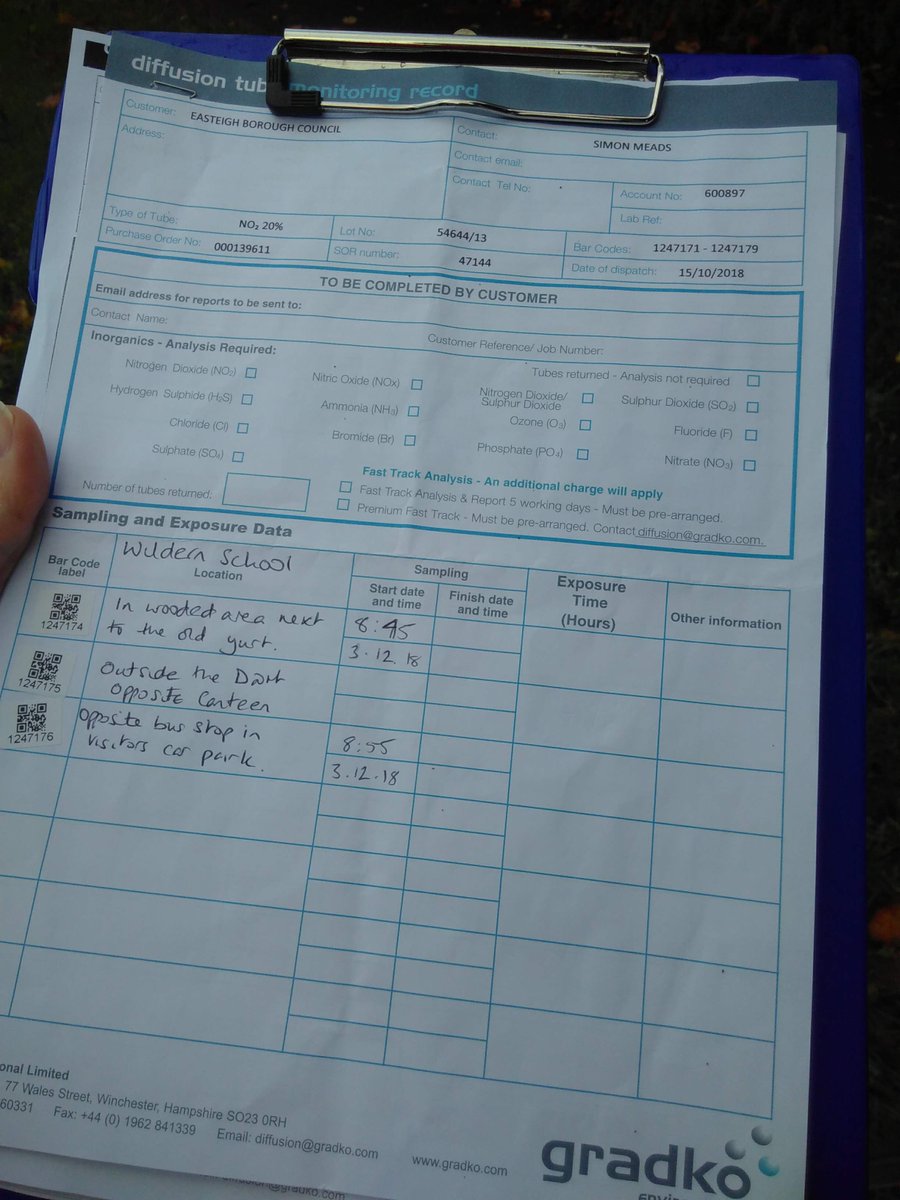 diffusion tube monitoring record
Customer: EASTEIGH BOROUGH COUNCIL
Contact: SIMON MEADS
Address:
Contact email:
Contact Tel No:
Account No: 600897
Lab Ref:
Type of Tube: NO₂ 20%
Lot No: 54644/13
Bar Codes: 1247171 - 1247179
Purchase Order No: 000139611
SOR number: 47144
Date of dispatch: 15/10/2018
TO BE COMPLETED BY CUSTOMER
Email address for reports to be sent to:
Contact Name:
Customer Reference/ Job Number:
Inorganics - Analysis Required:
Tubes returned - Analysis not required
Nitrogen Dioxide (NO₂)
Nitric Oxide (NOx)
Nitrogen Dioxide/
Sulphur Dioxide
Sulphur Dioxide (SO₂)
Hydrogen Sulphide (H₂S)
Ammonia (NH₃)
Ozone (O₃)
Fluoride (F)
Chloride (Cl)
Bromide (Br)
Phosphate (PO₄)
Nitrate (NO₃)
Sulphate (SO₄)
Fast Track Analysis - An additional charge will apply
Number of tubes returned:
Fast Track Analysis & Report 5 working days - Must be pre-arranged.
Premium Fast Track - Must be pre-arranged. Contact diffusion@gradko.com.
Sampling and Exposure Data
Bar Code
label
Wildern School
Location
Sampling
Start date
and time
Finish date
and time
Exposure
Time
(Hours)
Other information
1247174
In wooded area next
to the old yurt.
8:45
3.12.18
1247175
Outside the
Opposite Canteen
1247176
Opposite bus stop in
visitors car park.
8:55
3.12.18
onal Limited
77 Wales Street, Winchester, Hampshire SO23 0RH
60331 Fax: +44 (0) 1962 841339 Email: diffusion@gradko.com www.gradko.com
gradko